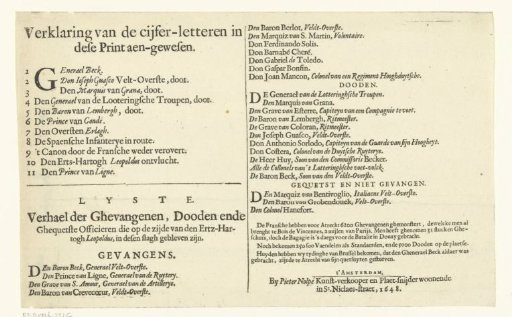 Verklaring van de cijfer-letteren in
dese Print aen-gewesen.
1 Generael Beck.
2 Don Ioseph Guasco Velt-Overste, doot.
3 Den Marquis van Grana, doot.
4 Den Generael van de Looteringsche Troupen, doot.
5 Den Baron van Lembergh, doot.
6 De Prince van Condé.
7 Den Oversten Erlagh.
8 De Spaensche Infanterye in route.
9 't Canon door de Fransche weder verovert.
10 Den Erts-Hartogh Leopoldus ontvlucht.
11 Den Prince van Ligne.
LYSTE
Verhael der Ghevangenen, Dooden ende
Ghequetste Officieren die op de zijde van den Ertz-Har-
togh Leopoldus, in desen slagh gebleven zijn.
GEVANGENS.
Den Baron Beck, Generael Velt-Overste.
Den Prince van Ligne, Generael van de Ruytery.
Den Grave van S. Amour, Generael van de Artillerye.
Den Baron van Crevecœur, Veldt-Overste.
Den Baron Berlot, Veldt-Overste.
Den Marquiz van S. Martin, Voluntaire.
Don Ferdinando Solis.
Don Barnabé Cheré.
Don Gabriel de Toledo.
Don Gaspar Bonfin.
Don Joan Mancon, Colonel van een Regiment Hooghduytsche.
DOODEN.
De Generael van de Lotteringhsche Troupen.
Den Marquis van Grana.
Den Grave van Esterre, Capiteyn van een Compagnie te voet.
De Baron van Lembergh, Ritmeester.
De Grave van Coloran, Ritmeester.
Don Joseph Guasco, Veldt-Overste.
Don Anthonio Sorlodo, Capiteyn van de Guarde van sijn Hoogheyt.
Don Costera, Colonel van de Duytsche Ruyterye.
De Heer Huy, Soon van den Commissaris Becker.
Alle de Collonels van 't Lotteringhsche voet-volck.
De Baron Beck, Soon van den Veldt-Overste.
GEQUETST EN NIET GEVANGEN.
Den Marquiz van Bentivoglio, Italiaens Velt-Overste.
Den Baron van Grobendonck, Velt-Overste.
Den Colonel Hanefort.
De Fransche hebben voor Atrecht 6100 Ghevangenen ghemonstert, dewelcke men al
brenght te Bois de Vincennes, 2 mijlen van Parijs. Men heeft ghenomen 38 stucken Ghe-
schuts, doch de Bagagie is 's daeghs voor de Batalie in Doway gebracht.
Noch bekomen 130 soo Vaendelen als Standaerden, ende 3000 Dooden op de plaetse.
Huyden hebben wy tydinghe van Brussel bekomen, dat den Ghenerael Beck aldaer was
gebracht, zijnde te Atrecht van sijn quetsuyren gestorven.
t'AMSTERDAM,
By Pieter Nolpe Kunst-verkooper en Plaet-snijder woonende
in St. Niclaes-straet, 1648.